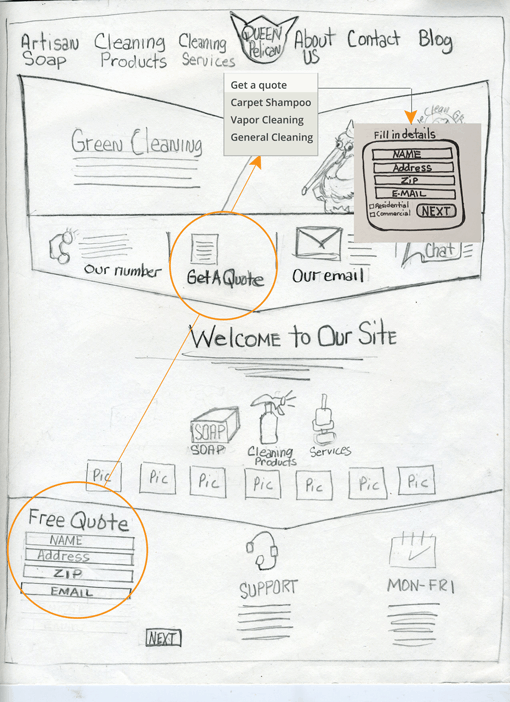 Artisan Soap
Cleaning Products
Cleaning Services
QUEEN Pelican
About Us
Contact
Blog
Get a quote
Carpet Shampoo
Vapor Cleaning
General Cleaning
Fill in details
NAME
Address
ZIP
E-MAIL
Residential
Commercial
NEXT
Green Cleaning
Our number
Get A Quote
Our email
Chat
Welcome to Our Site
SOAP
SOAP
Cleaning Products
Services
Pic Pic Pic Pic Pic Pic Pic
Free Quote
NAME
Address
ZIP
EMAIL
NEXT
SUPPORT
MON-FRI